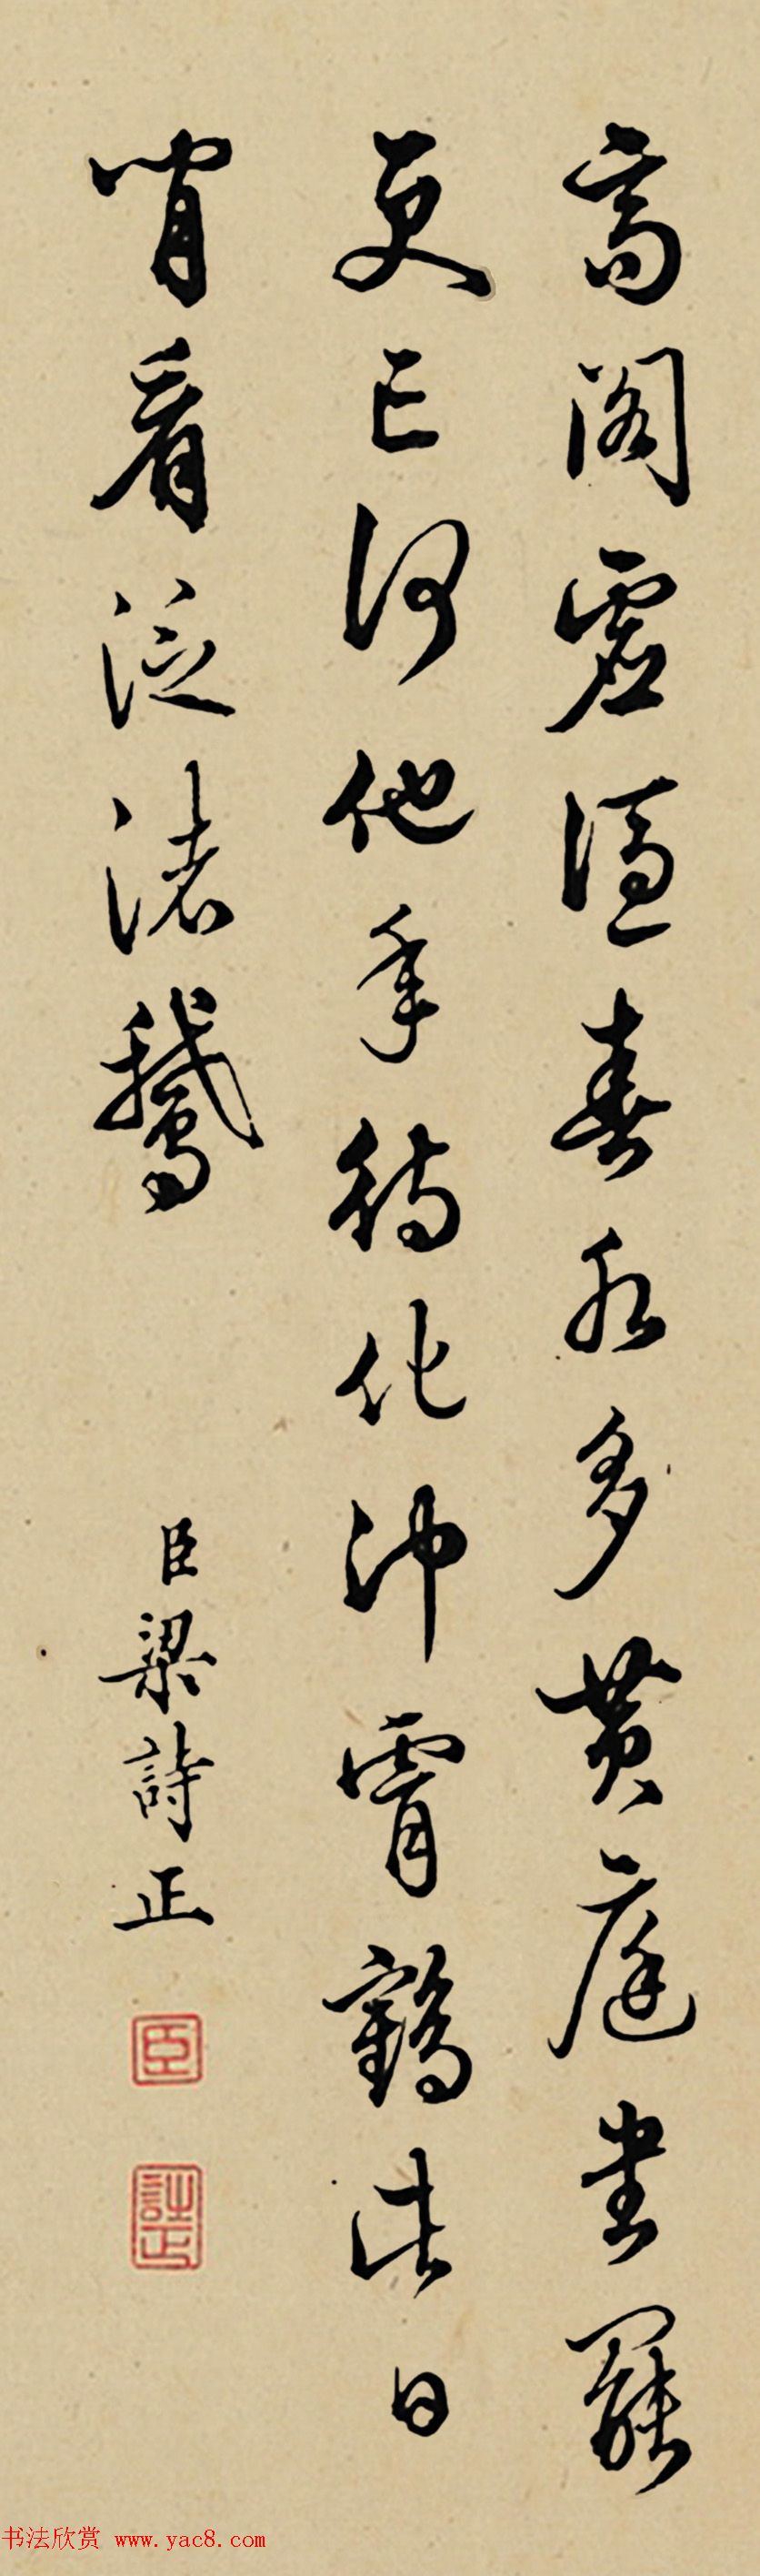 高閣虛憑春水多黃庭書罷
更何他年待化沖霄鶴此日
閒看泛渚鵝
臣梁詩正
臣
詩正
书法欣赏 www.yac8.com